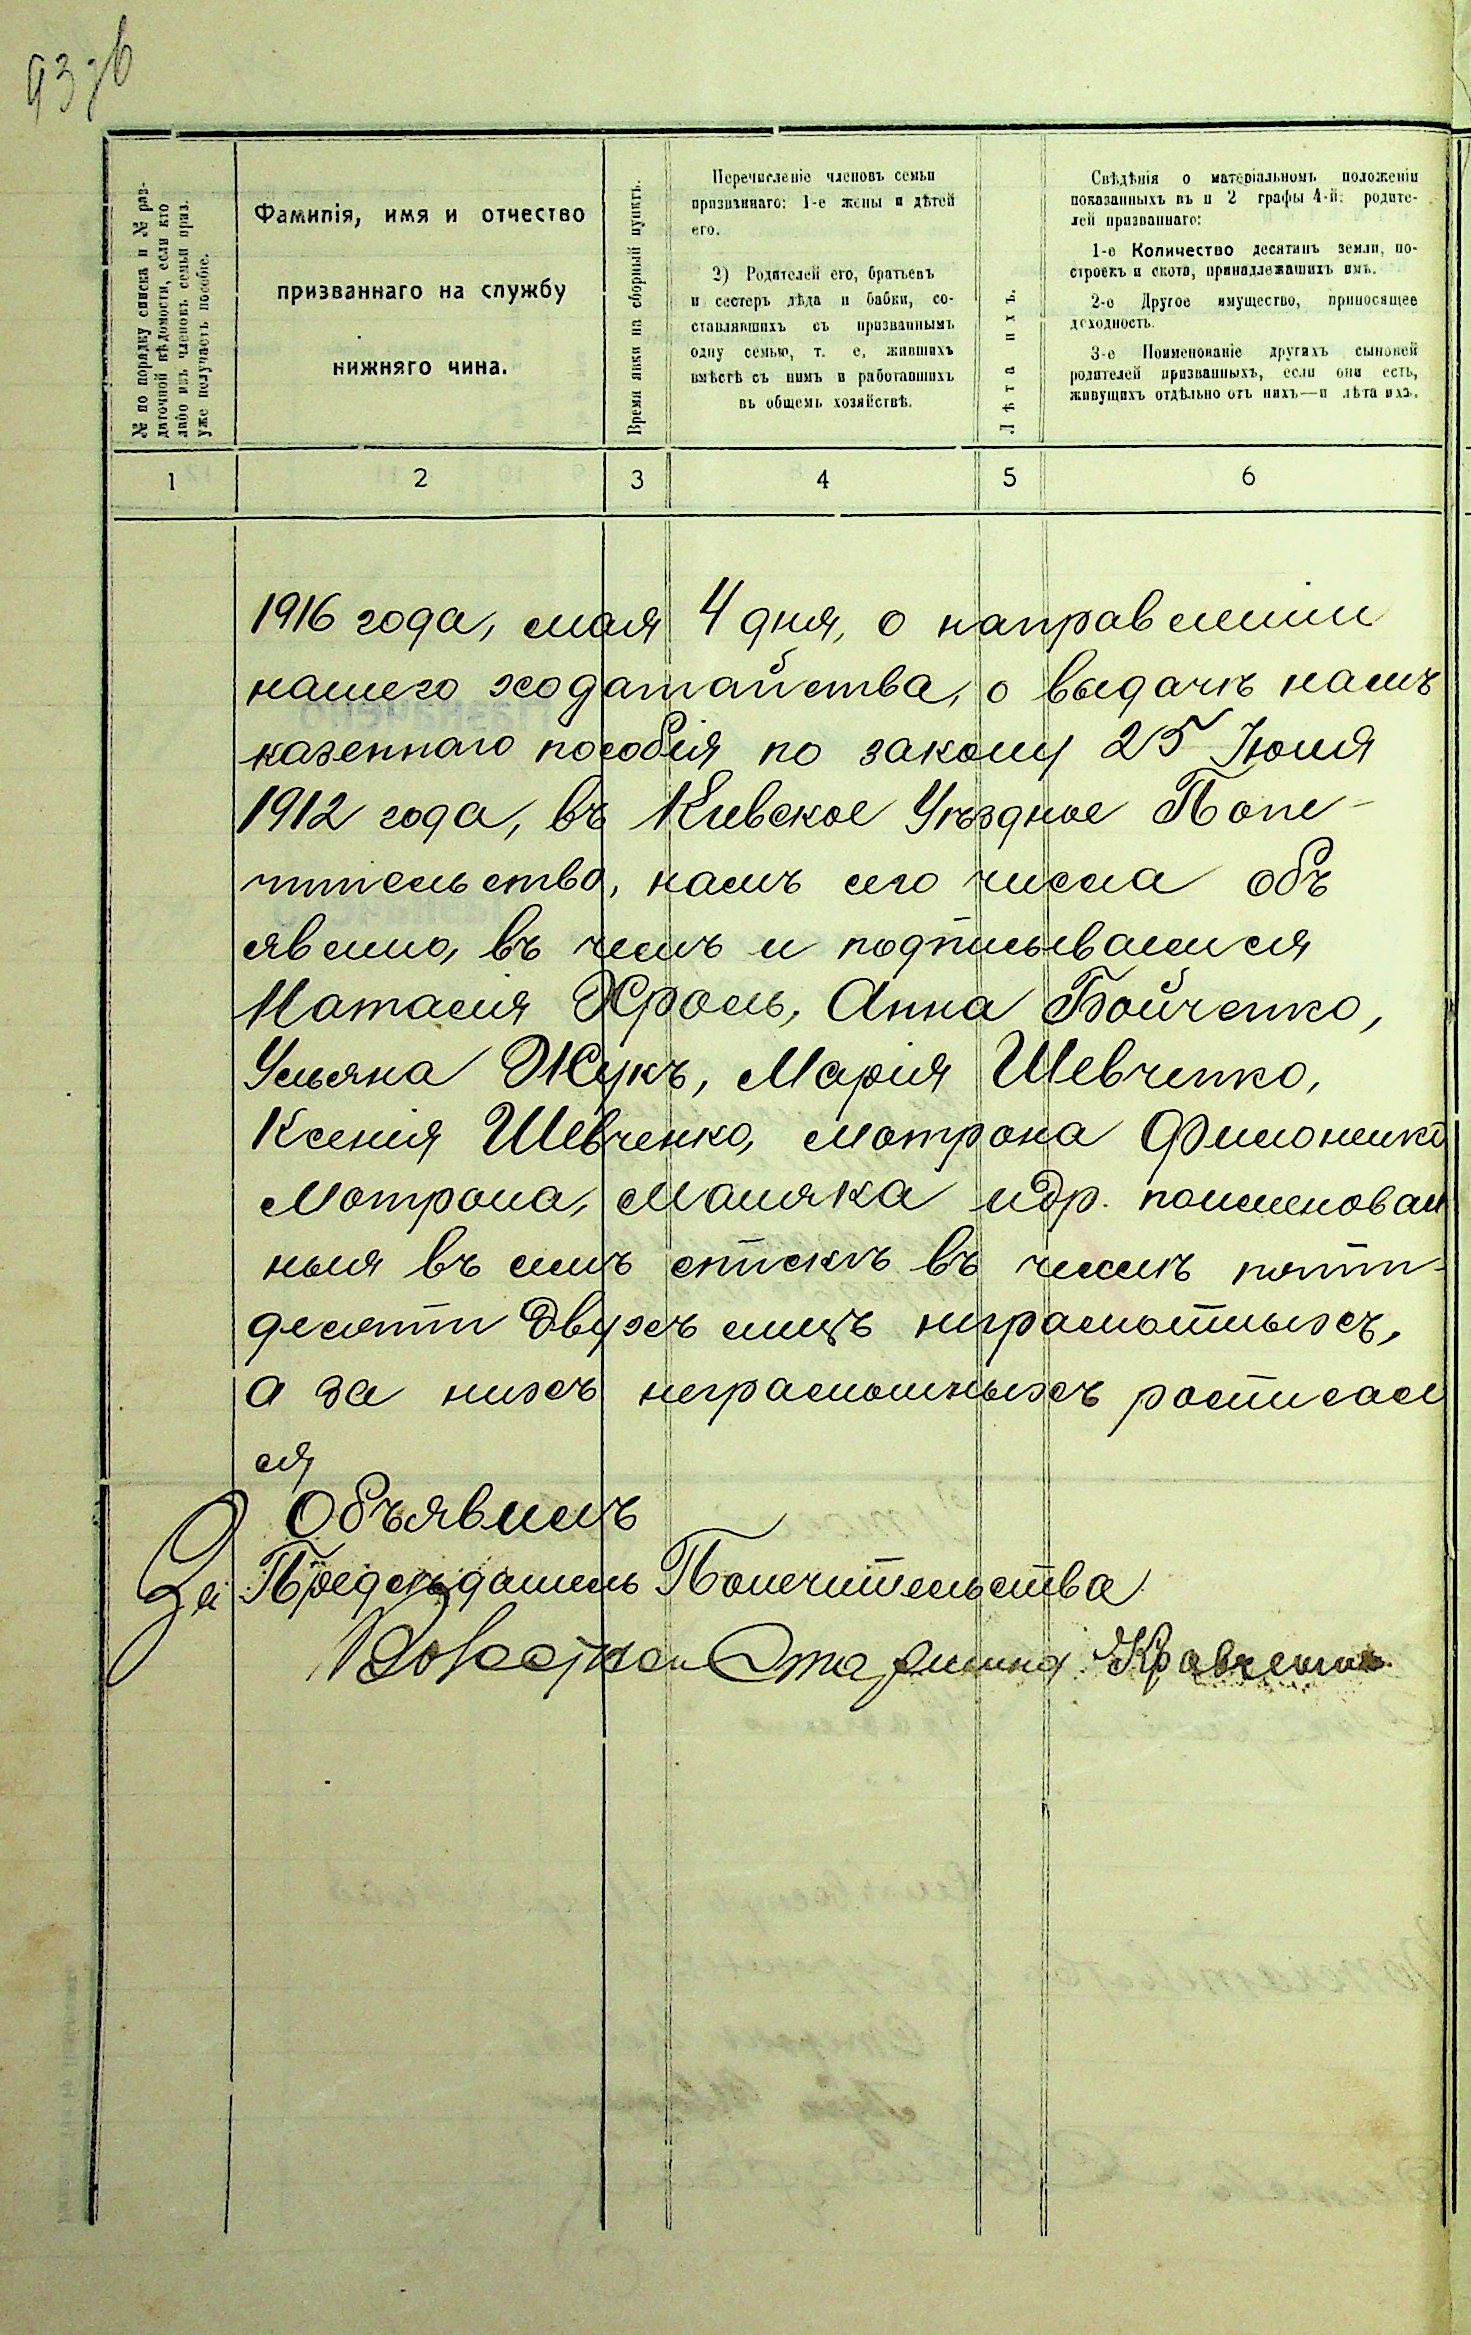 93 зв
№ по порядку списка и № раз-
даточной вѣдомости, если кто
либо изъ членовъ семьи приз.
уже получаетъ пособіе.
Фамилія, имя и отчество
призваннаго на службу
нижняго чина.
Время явки на сборный пунктъ.
Перечисленіе членовъ семьи
призваннаго: 1-е жены и дѣтей
его.
2) Родителей его, братьевъ
и сестеръ дѣда и бабки, со-
ставлявшихъ съ призваннымъ
одну семью, т. е, жившихъ
вмѣстѣ съ нимъ и работавшихъ
въ общемъ хозяйствѣ.
Лѣта ихъ.
Свѣдѣнія о матеріальномъ положеніи
показанныхъ въ п 2 графы 4-й: родите-
лей призваннаго:
1-е Количество десятинъ земли, по-
строекъ и скота, принадлежащихъ имъ.
2-е Другое имущество, приносящее
доходность.
3-е Поименованіе другихъ сыновей
родителей призванныхъ, если они есть,
живущихъ отдѣльно отъ нихъ—и лѣта ихъ.
1 2 3 4 5 6
1916 года, мая 4 дня, о направленіи
нашего ходатайства, о выдачѣ намъ
казеннаго пособія по закону 25 Іюня
1912 года, въ Кіевское Уѣздное Попе-
чительство, намъ сего числа объ
явлено, въ чемъ и подписываемся
Наталія Хроль, Анна Бойченко,
Ульяна Жукъ, Марія Шевченко,
Ксенія Шевченко, Мотрона Филоненко
Мотрона, Маляка и др. поименован
ныя въ семъ спискѣ въ числѣ пяти-
десяти двухъ лицъ неграмотныхъ,
а за нихъ неграмотныхъ росписал
ся
Объявилъ
За Предсѣдатель Попечительства
Волостной Старшина Кравченко